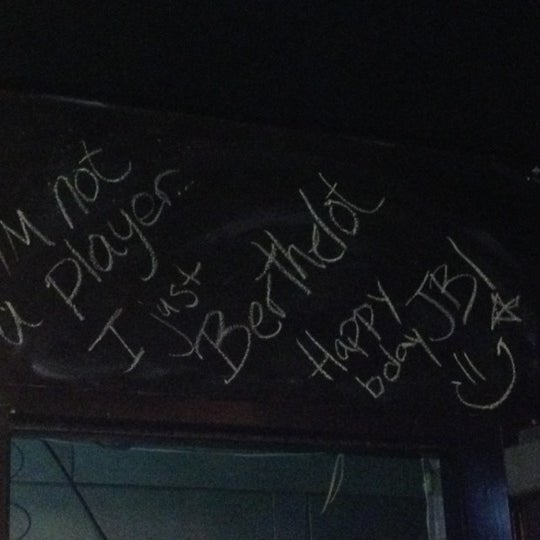 I'M not
a player...
I just
Berthelot
Happy
bday JB!